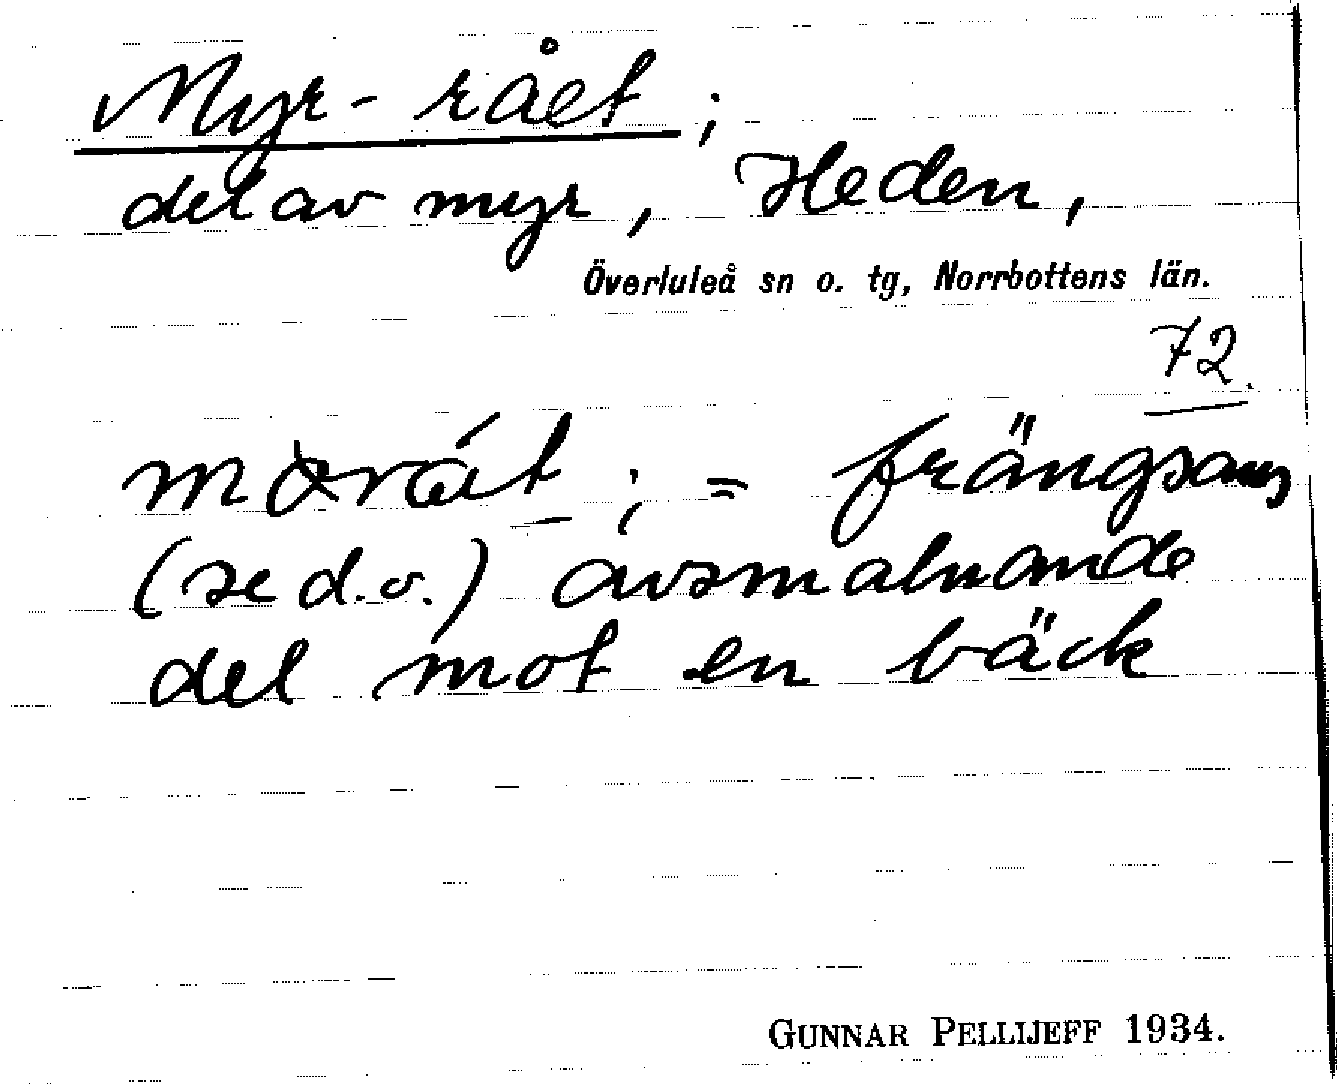 Myr-rået;
del av myr, Heden,
Överluleå sn o. tg, Norrbottens län.
72.
; = frängsam
(se d.o.) avsmalnande
del mot en bäck
GUNNAR PELLIJEFF 1934.